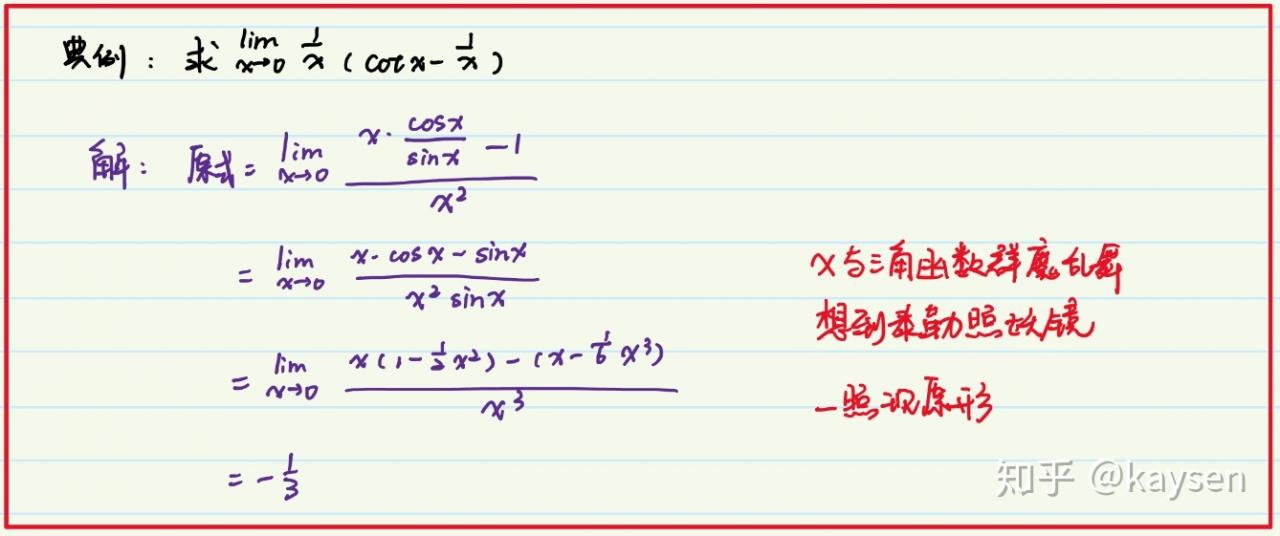 典例：求 lim x→0 1/x (cotx - 1/x)
解：原式 = lim x→0 (x· cosx/sinx - 1)/x²
= lim x→0 (x·cosx - sinx)/(x² sinx)
= lim x→0 (x(1 - 1/2 x²) - (x - 1/6 x³))/x³
= -1/3
x与三角函数群魔乱舞
想到泰勒照妖镜
一照现原形
知乎 @kaysen